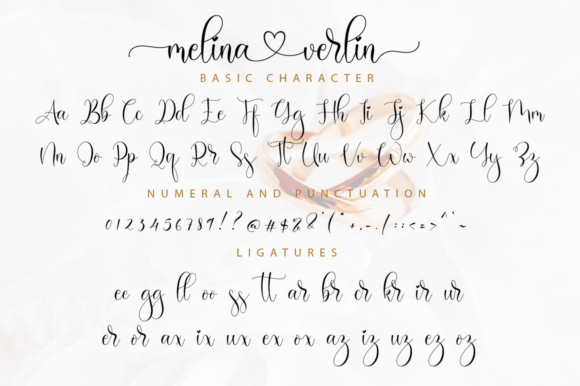 melina verlin
BASIC CHARACTER
Aa Bb Cc Dd Ee Ff Gg Hh Ii Jj Kk Ll Mm
Nn Oo Pp Qq Rr Ss Tt Uu Vv Ww Xx Yy Zz
NUMERAL AND PUNCTUATION
0123456789!?@#$%&
LIGATURES
ee gg ll oo ss tt ar br cr kr ir ur
er or ax ix ux ex ox az iz uz ez oz